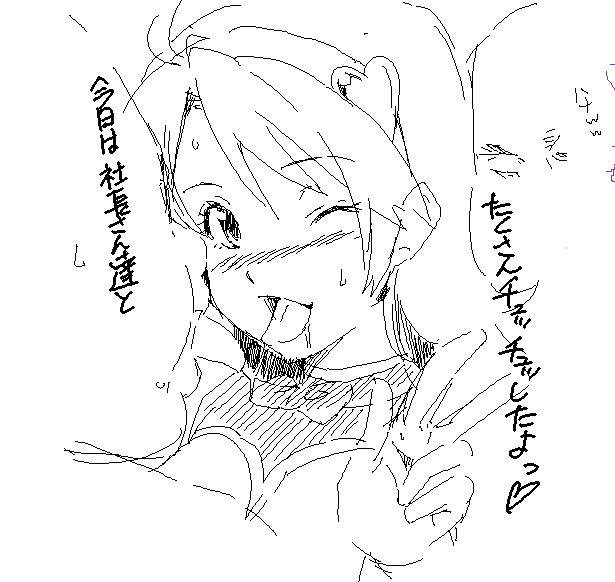 今日は社長さん達と
たくさんチュッチュッしたよっ♡